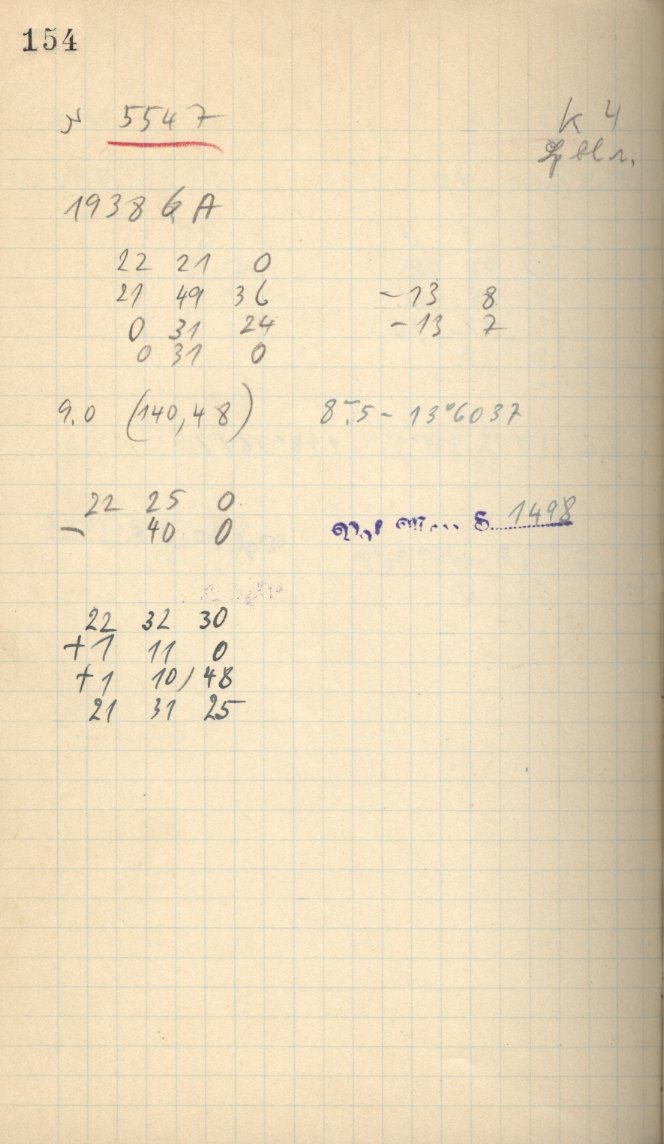 154
5547
K 4
1938 GA
22 21 0
21 49 36 -13 8
0 31 24 -13 7
0 31 0
9.0 (140,48) 8.5 - 13°6037
22 25 0
- 40 0
1498
22 32 30
+1 11 0
+1 10,48
21 31 25